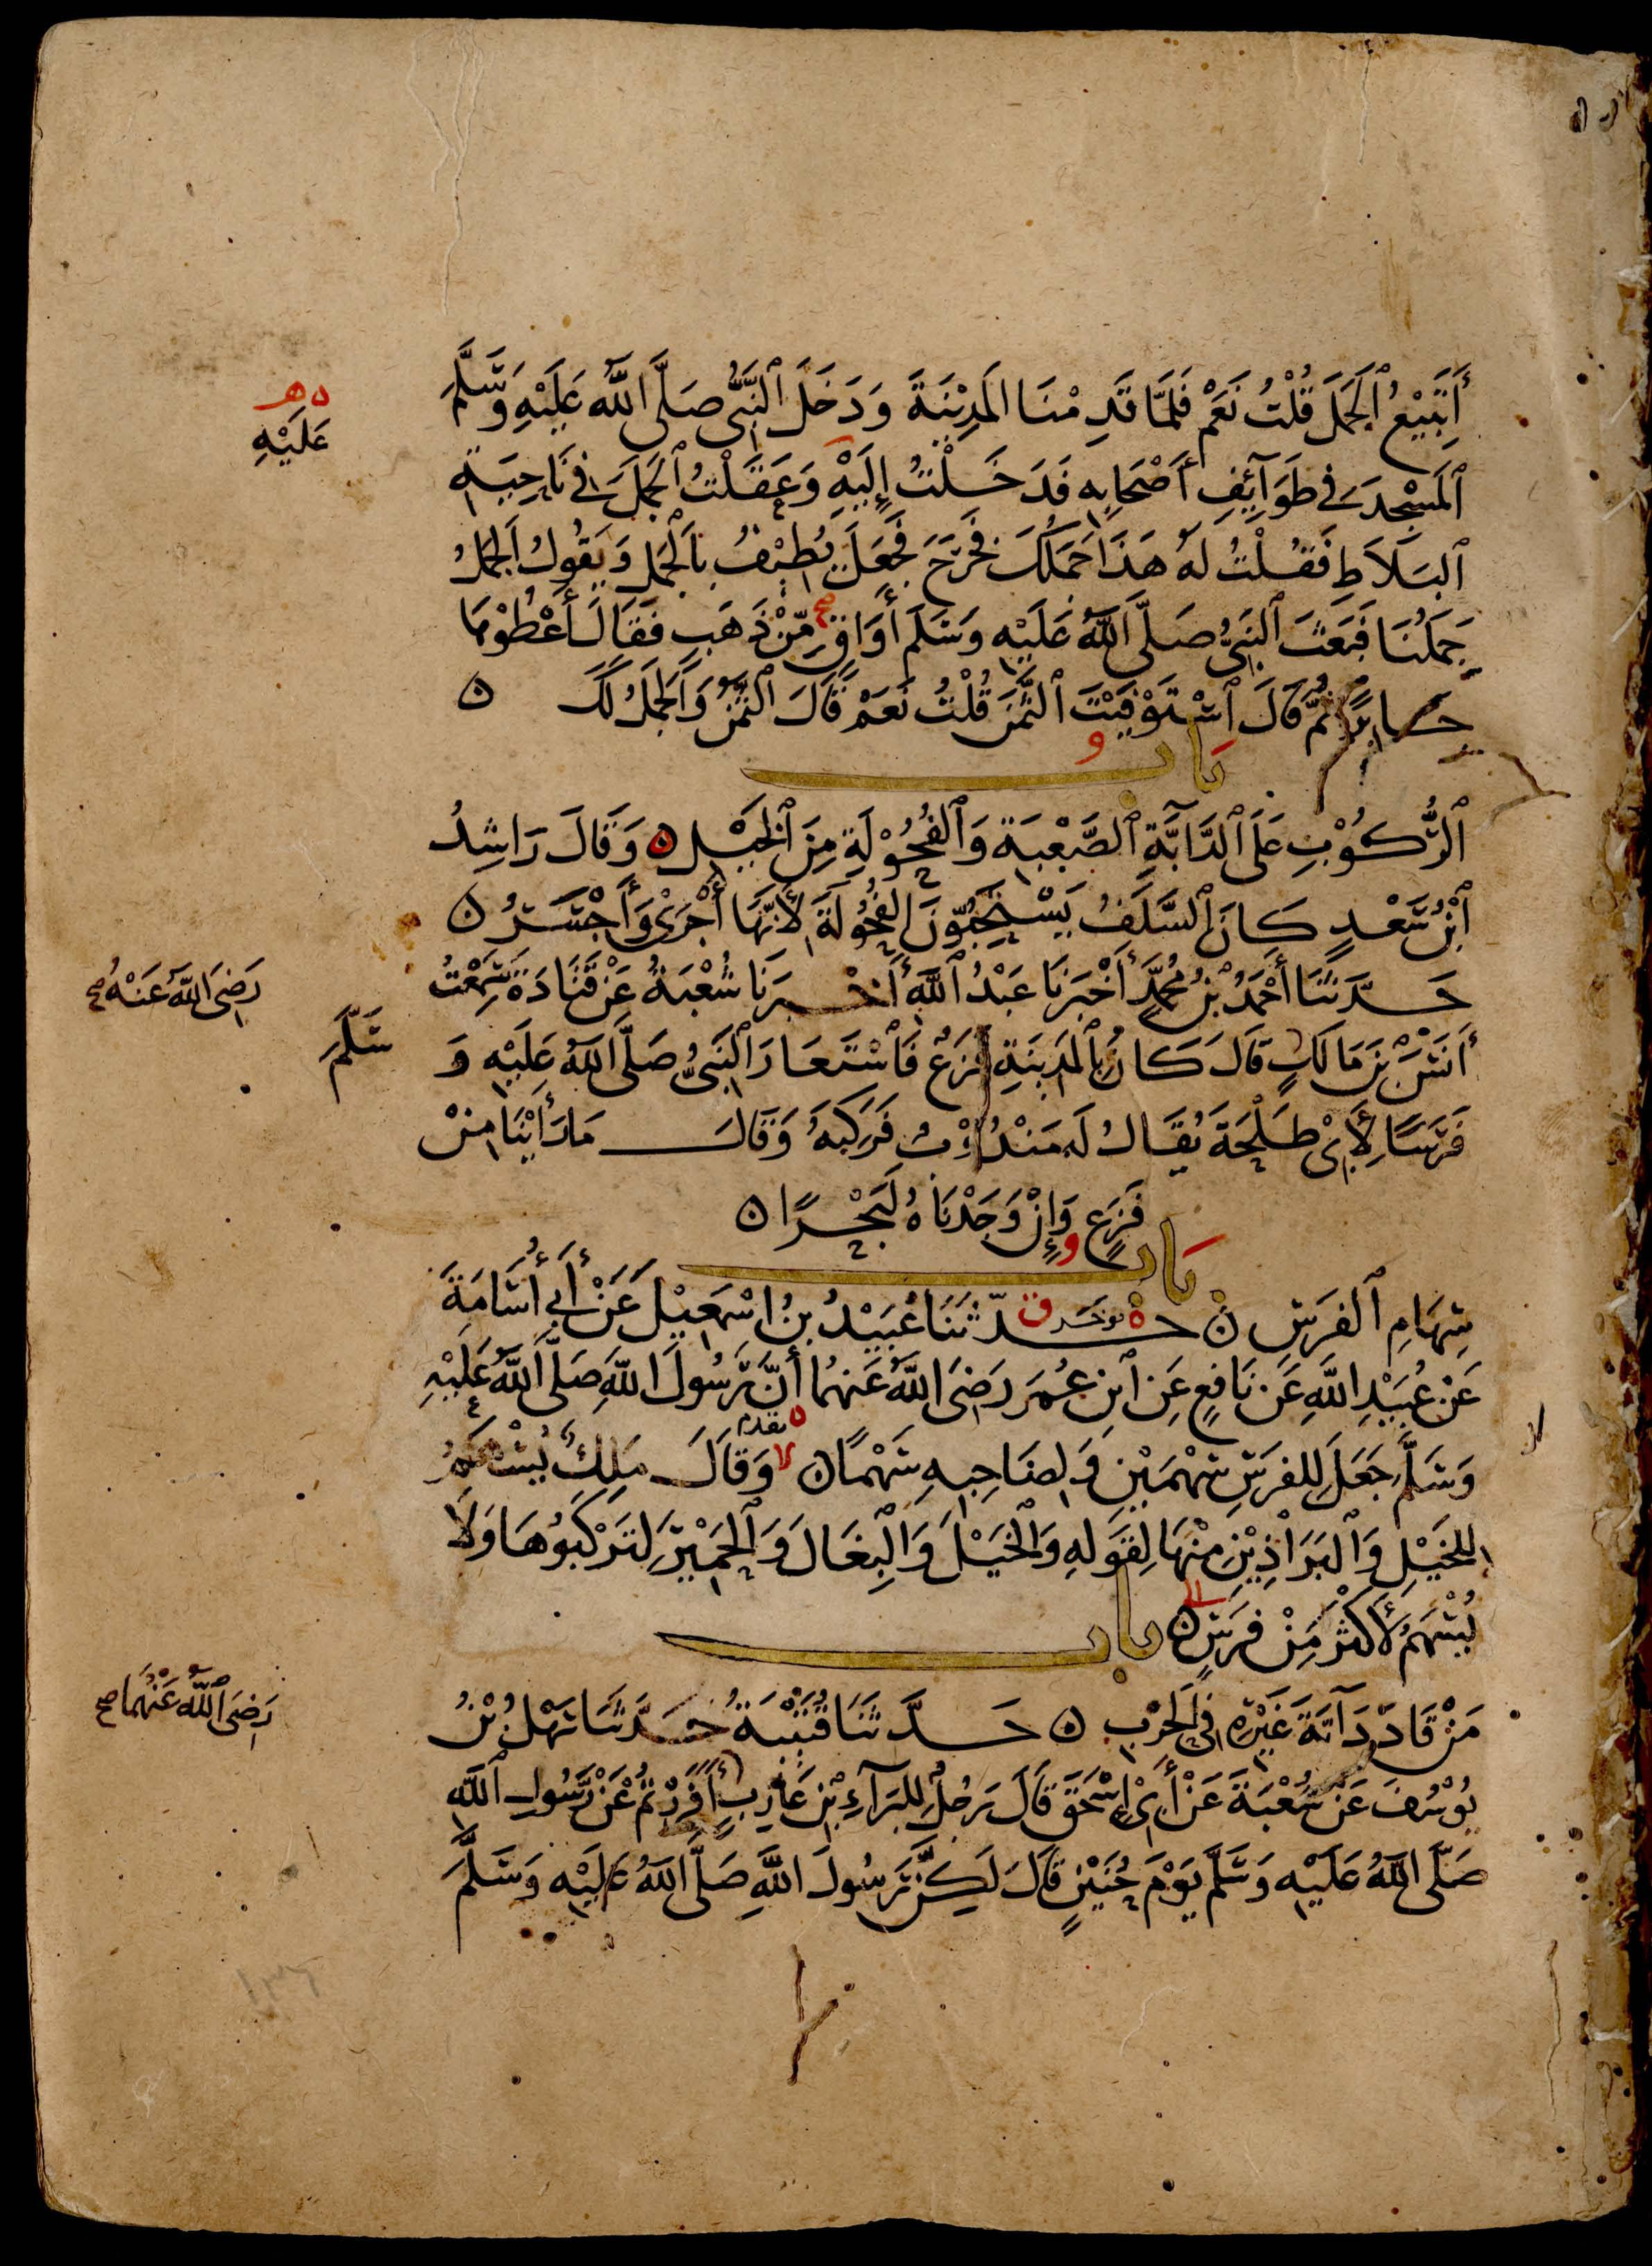 أَتَبِيْعُ ٱلْجَمَلَ قُلْتُ نَعَمْ فَلَمَّا قَدِمْنَا المَدِيْنَةَ وَدَخَلَ ٱلنَّبِيُّ صَلَّى اللَّهُ عَلَيْهِ وَسَلَّمَ
عَلَيْهِ
ٱلمَسْجِدَ فِي طَوَآئِفِ أَصْحَابِهِ فَدَخَلْتُ إِلَيْهِ وَعَقَلْتُ ٱلجَمَلَ فِي نَاحِيَةِ
ٱلبَلَاطِ فَقُلْتُ لَهُ هَذَا جَمَلُكَ فَخَرَجَ فَجَعَلَ يُطِيْفُ بِالْجَمَلِ وَيَقُولُ اَلجَمَلُ
جَمَلُنَا فَبَعَثَ ٱلنَّبِيُّ صَلَّى اللَّهُ عَلَيْهِ وَسَلَّمَ أَوَاقٍ مِّنْ ذَهَبٍ فَقَالَ أَعْطُوْهَا
جَابِرًا ثُمَّ قَالَ ٱسْتَوْفَيْتَ ٱلثَّمَنَ قُلْتُ نَعَمْ قَالَ ٱلثَّمَنُ وَاَلجَمَلُ لَكَ ن
بَاب
ٱلرُّكُوْبِ عَلَى ٱلدَّآبَّةِ ٱلصَّعْبَةِ وَٱلفُحُوْلَةِ مِنَ ٱلخَيْلِ ن وَقَالَ رَاشِدُ
ٱبْنُ سَعْدٍ كَانَ ٱلسَّلَفُ يَسْتَحِبُّوْنَ الفُحُوْلَةَ لِأَنَّهَا أَجْرَى وَأَجْسَرُ ن
حَدَّثَنَا أَحْمَدُ بْنُ مُحَمَّدٍ أَخْبَرَنَا عَبْدُ ٱللَّهِ أَخْبَرَنَا شُعْبَةُ عَنْ قَتَادَةَ سَمِعْتُ
رَضِيَ اللَّهُ عَنْهُ صح
أَنَسَ بْنَ مَالِكٍ قَالَ كَانَ بِالْمَدِيْنَةِ فَزَعٌ فَاسْتَعَارَ ٱلنَّبِيُّ صَلَّى اللَّهُ عَلَيْهِ وَ
سَلَّمَ
فَرَسًا لِأَبِيْ طَلْحَةَ يُقَالُ لَهُ مَنْدُوْبٌ فَرَكِبَهُ وَقَالَ مَا رَأَيْنَا مِنْ
فَزَعٍ وَإِنْ وَجَدْنَاهُ لَبَحْرًا ن
بَاب
سِهَامِ ٱلفَرَسِ ن حَدَّثَنَا عُبَيْدُ بنُ اسْمَعِيْلَ عَنْ أَبِي أُسَامَةَ
عَنْ عُبَيْدِ اللَّهِ عَنْ نَافِعٍ عَنِ ٱبْنِ عُمَرَ رَضِيَ اللَّهُ عَنْهُمَا أَنَّ رَسُولَ اللَّهِ صَلَّى اللَّهُ عَلَيْهِ
تقدم
وَسَلَّمَ جَعَلَ لِلفَرَسِ سَهْمَيْنِ وَلِصَاحِبِهِ سَهْمًا ن وَقَالَ مَلِكٌ يُسْهَمُ
لِلخَيْلِ وَٱلبَرَاذِيْنِ مِنْهَا لِقَوْلِهِ وَالْخَيْلَ وَٱلْبِغَالَ وَٱلْحَمِيْرَ لِتَرْكَبُوْهَا وَلَا
يُسْهَمُ لِأَكْثَرَ مِنْ فَرَسٍ ن بَاب
مَنْ قَادَ دَآبَّةَ غَيْرِهِ فِي الحَرْبِ ن حَدَّثَنَا قُتَيْبَةُ حَدَّثَنَا سَهْلُ بْنُ
رَضِيَ ٱللَّهُ عَنْهُمَا صح
يُوْسُفَ عَنْ شُعْبَةَ عَنْ أَبِيْ إِسْحَقَ قَالَ رَجُلٌ لِلبَرَآءِ بْنِ عَازِبٍ أَفَرَرْتُمْ عَنْ رَسُولِ ٱللَّهِ
صَلَّى اللَّهُ عَلَيْهِ وَسَلَّمَ يَوْمَ حُنَيْنٍ قَالَ لَكِنَّ رَسُولَ اللَّهِ صَلَّى اللَّهُ عَلَيْهِ وَسَلَّمَ